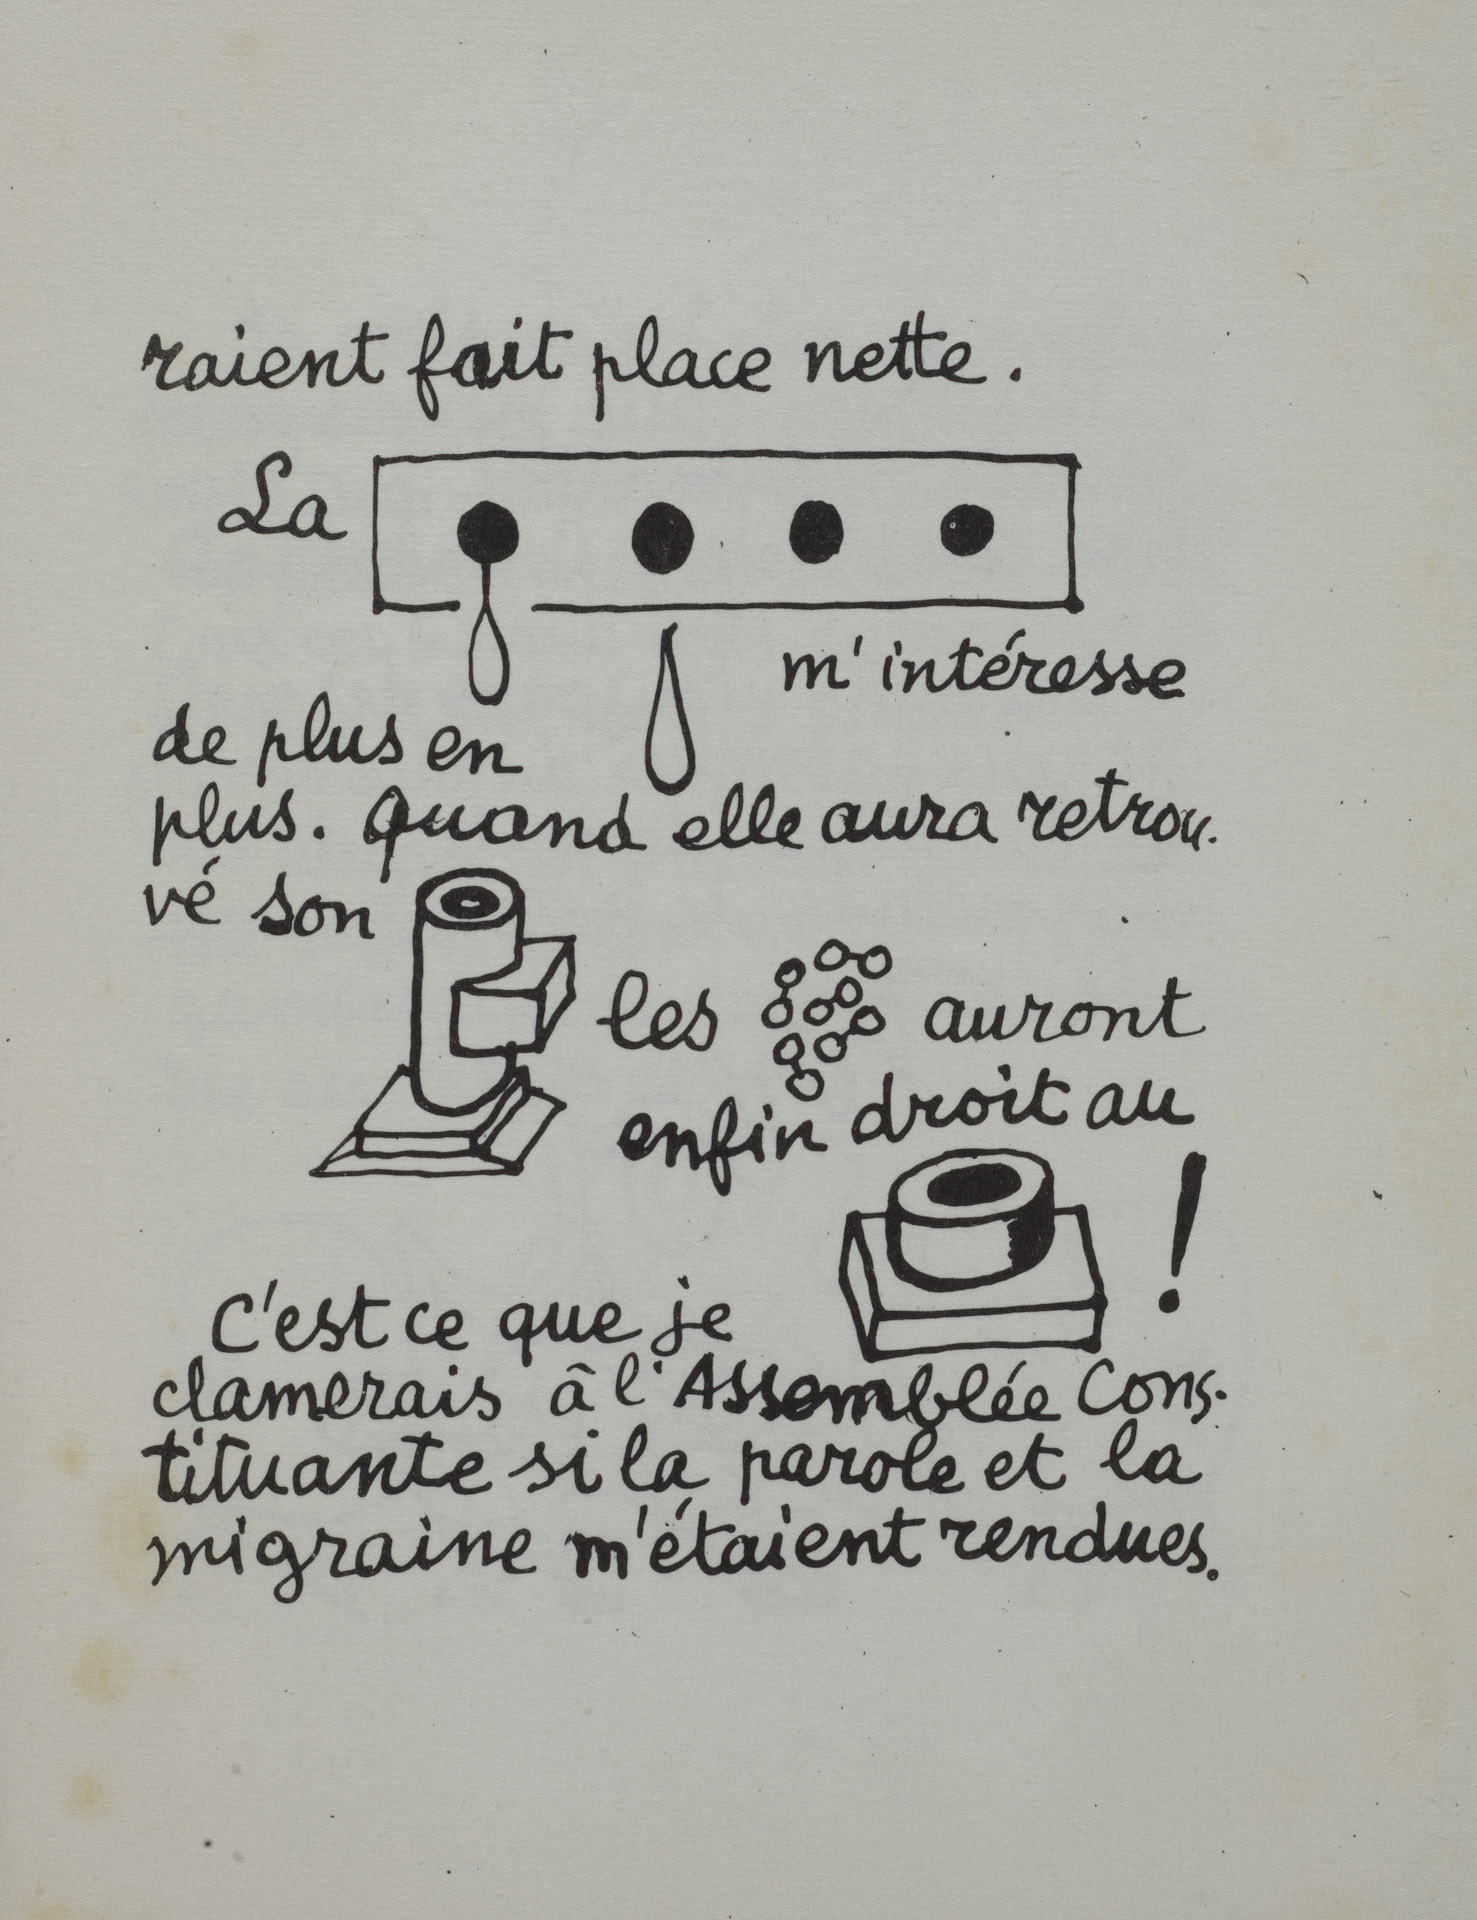 raient fait place nette.
La
m'intéresse
de plus en
plus. Quand elle aura retrou-
vé son
les auront
enfin droit au
!
C'est ce que je
clamerais â l'Assemblée Cons-
tituante si la parole et la
migraine m'étaient rendues.